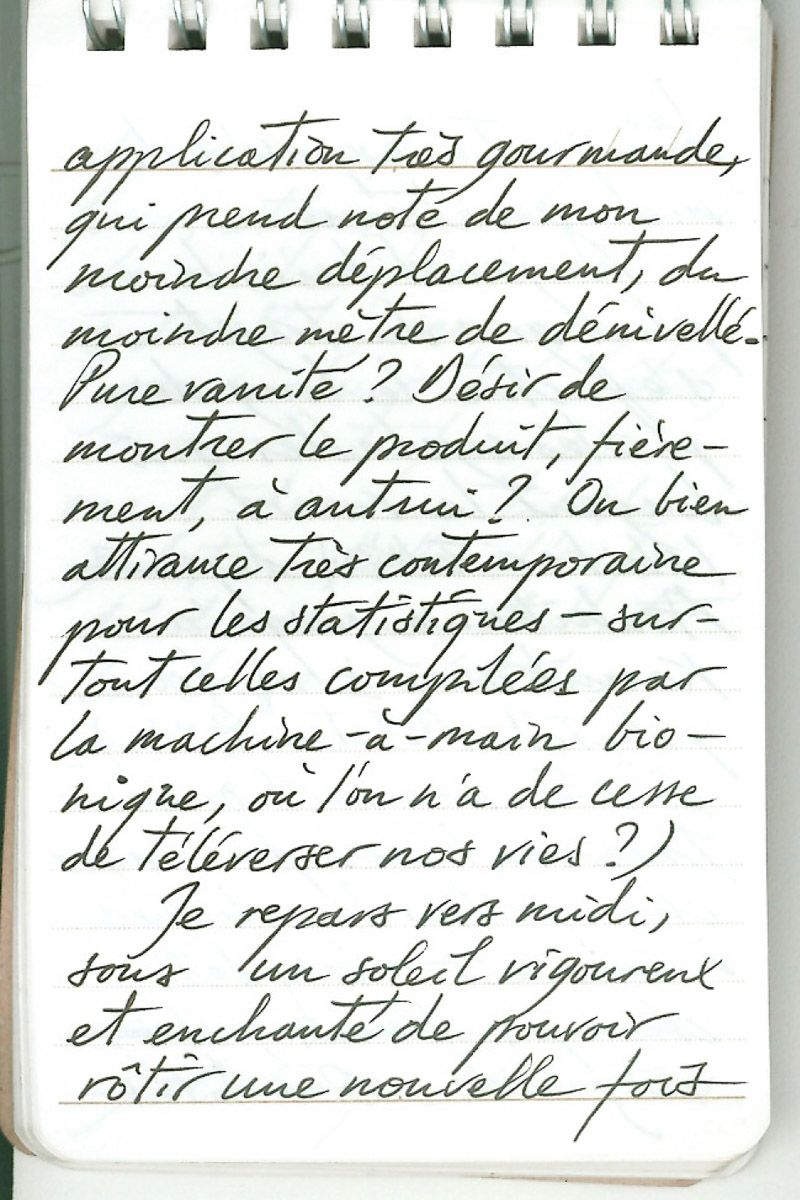 application très gourmande,
qui prend note de mon
moindre déplacement, du
moindre mètre de dénivellé.
Pure vanité ? Désir de
montrer le produit, fière-
ment, à autrui ? Ou bien
attirance très contemporaine
pour les statistiques – sur-
tout celles compilées par
la machine-à-main bio-
nique, où l'on n'a de cesse
de téléverser nos vies ?)
Je repars vers midi,
sous un soleil vigoureux
et enchanté de pouvoir
rôtir une nouvelle fois